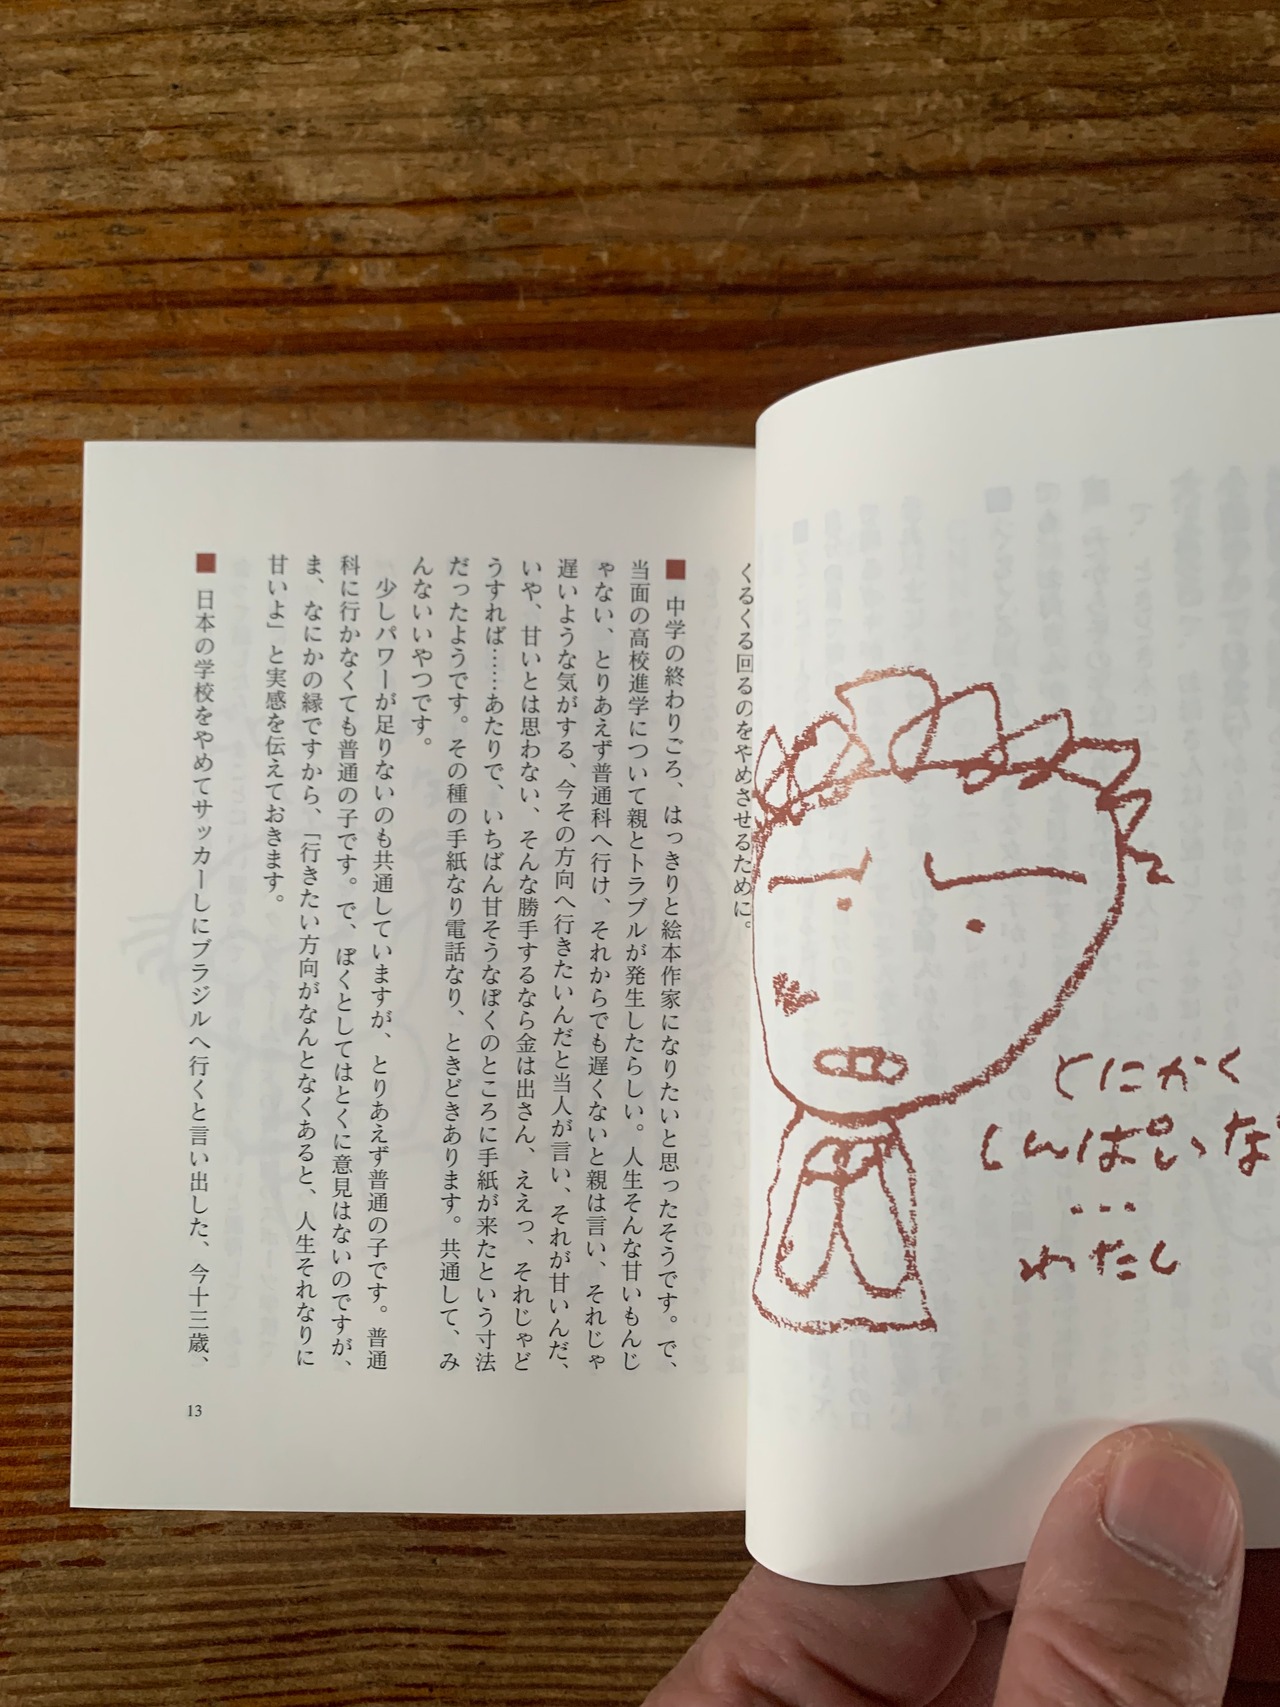 とにかく
しんぱいな
…
わたし
くるくる回るのをやめさせるために。
■ 中学の終わりごろ、はっきりと絵本作家になりたいと思ったそうです。で、
当面の高校進学について親とトラブルが発生したらしい。人生そんな甘いもんじ
ゃない、とりあえず普通科へ行け、それからでも遅くないと親は言い、それじゃ
遅いような気がする、今その方向へ行きたいんだと当人が言い、それが甘いんだ、
いや、甘いとは思わない、そんな勝手するなら金は出さん、ええっ、それじゃど
うすれば……あたりで、いちばん甘そうなぼくのところに手紙が来たという寸法
だったようです。その種の手紙なり電話なり、ときどきあります。共通して、み
んないいやつです。
少しパワーが足りないのも共通していますが、とりあえず普通の子です。普通
科に行かなくても普通の子です。で、ぼくとしてはとくに意見はないのですが、
ま、なにかの縁ですから、「行きたい方向がなんとなくあると、人生それなりに
甘いよ」と実感を伝えておきます。
■ 日本の学校をやめてサッカーしにブラジルへ行くと言い出した、今十三歳、
13